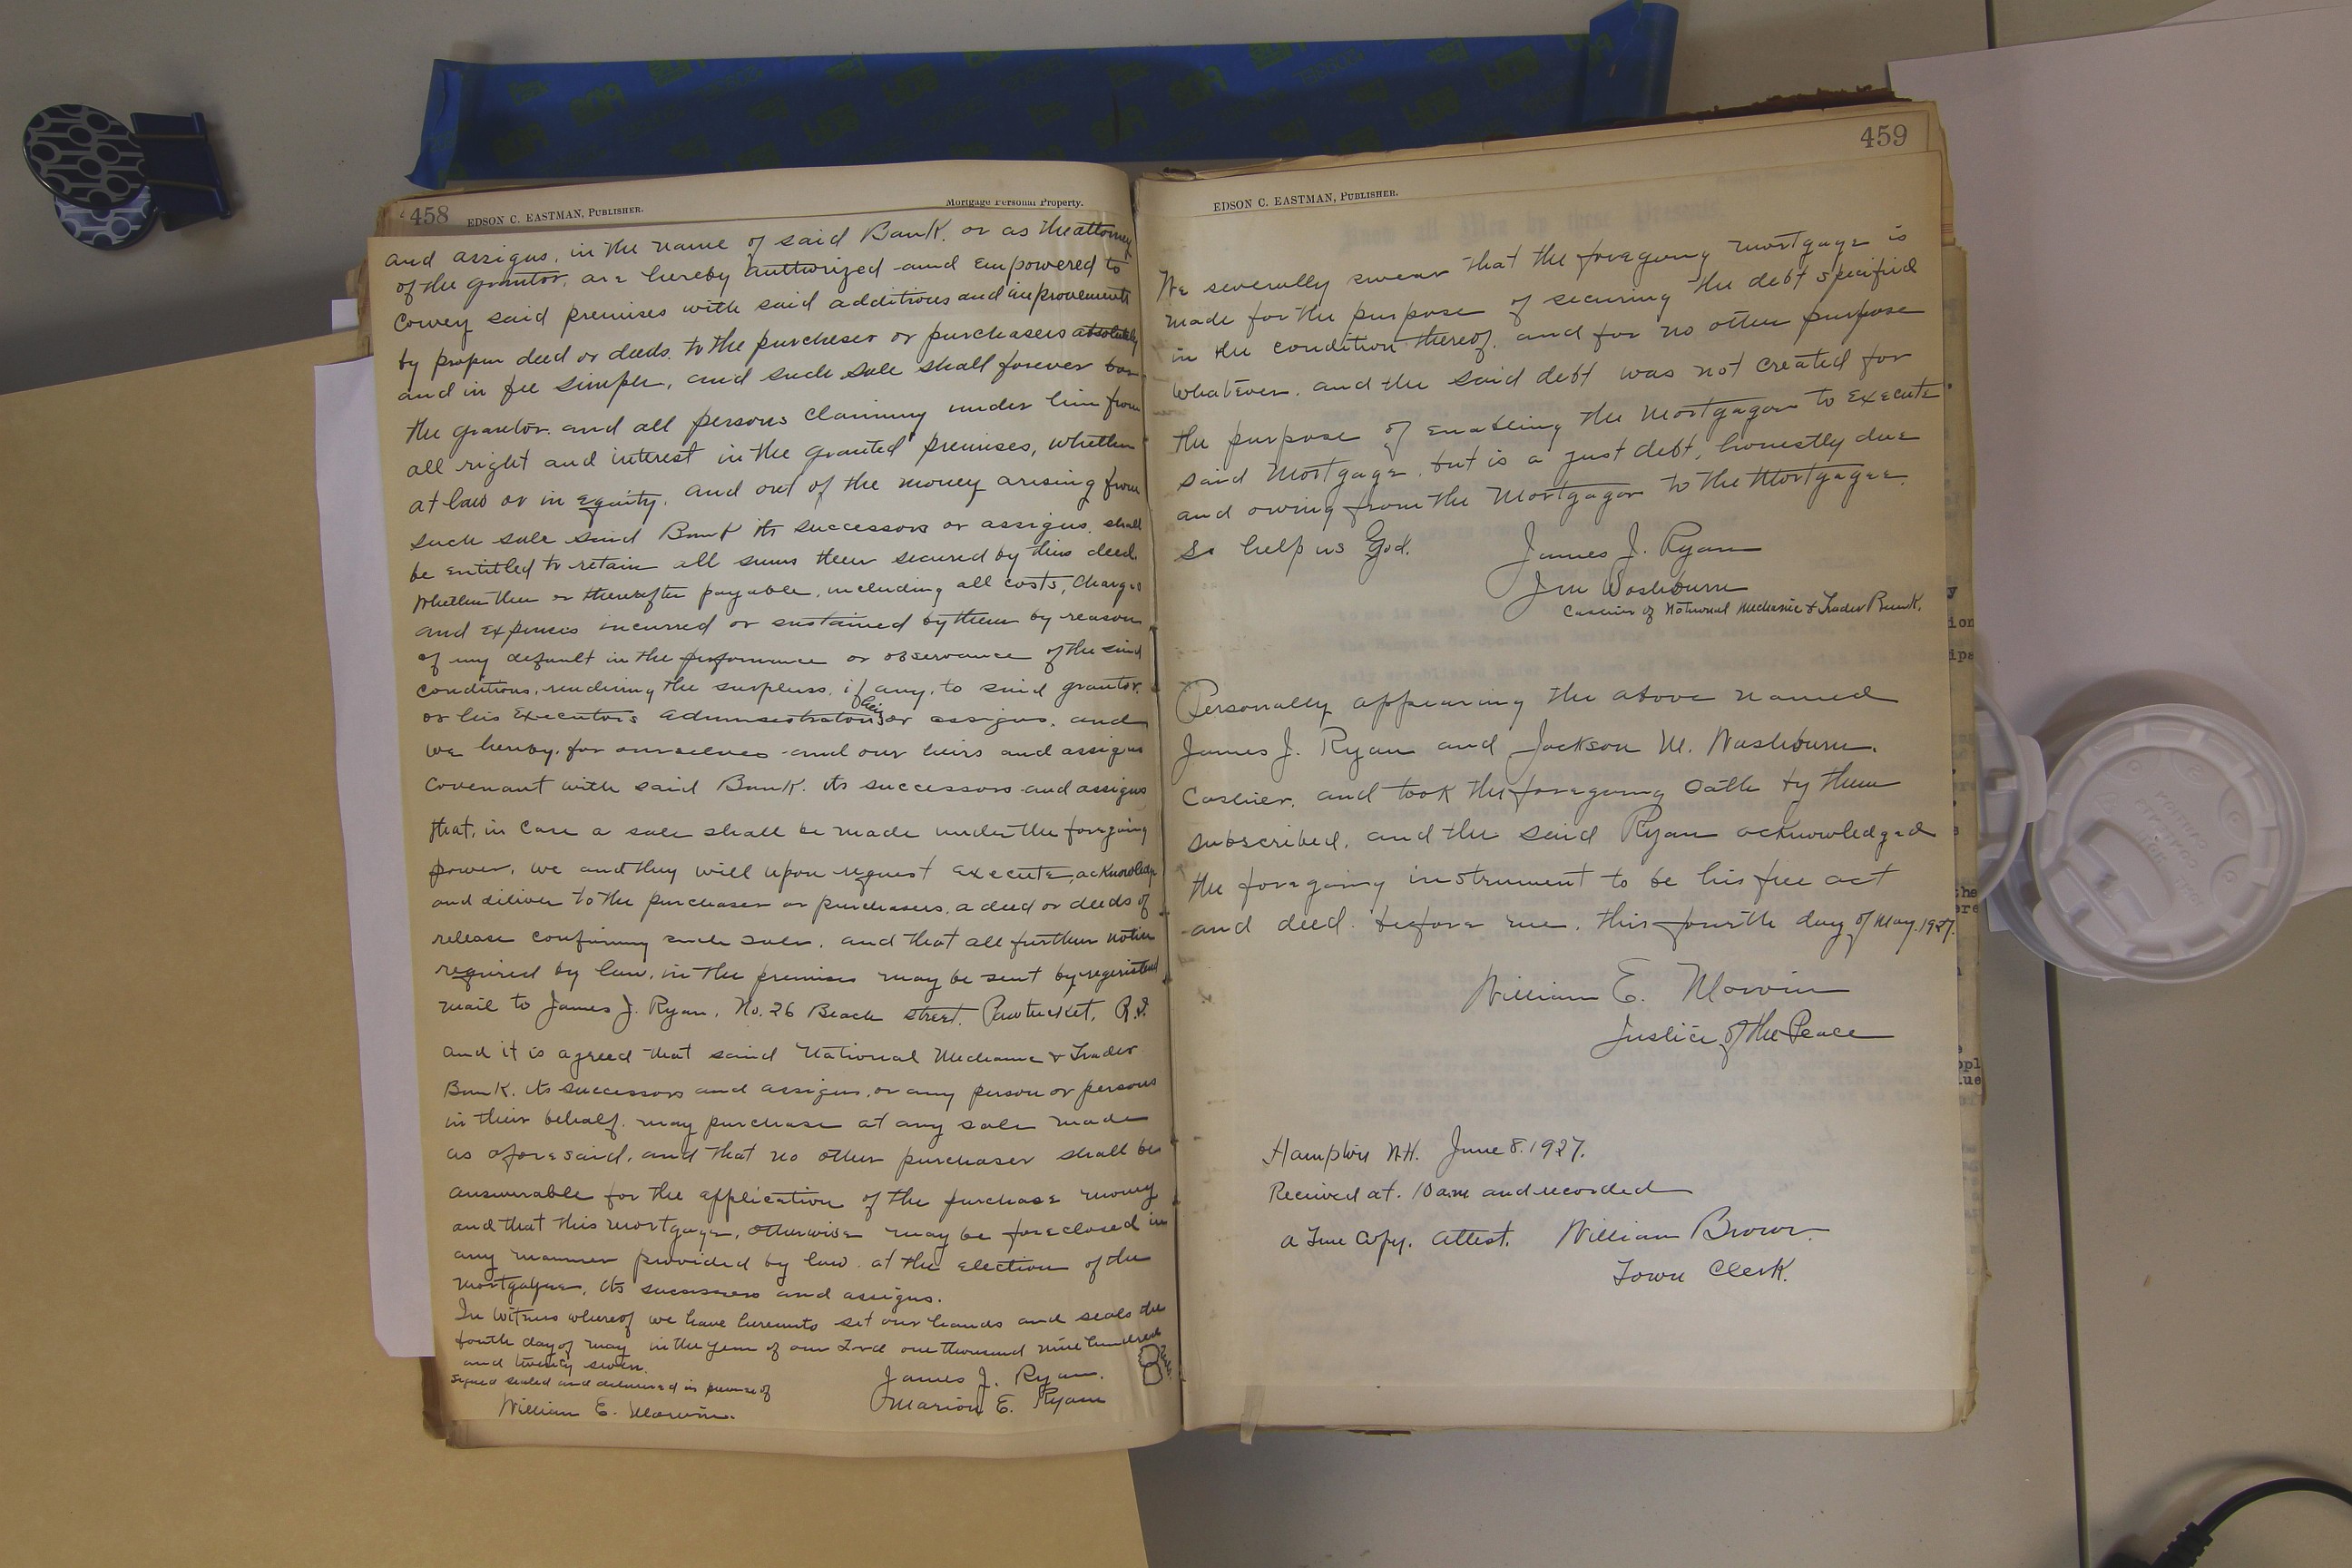 458 EDSON C. EASTMAN, PUBLISHER. Mortgage Personal Property.
and assigns, in the name of said Bank. or as the attorney
of the grantor, are hereby authorized and empowered to
convey said premises with said additions and improvements
by proper deed or deeds. to the purchaser or purchasers absolutely
and in fee simple, and such sale shall forever bar
the grantor. and all persons claiming under him from
all right and interest in the granted premises, whether
at law or in equity. and out of the money arising from
such sale said Bank its successors or assigns. shall
be entitled to retain all sums then secured by this deed.
Whether then or thereafter payable, including all costs, charges
and expenses incurred or sustained by them by reason
of any default in the performance or observance of the said
conditions, rendering the surpluss, if any, to said grantor.
or his Executors administrators his or assigns. and
we hereby, for ourselves and our heirs and assigns
covenant with said Bank. its successors and assigns
that, in case a sale shall be made under the foregoing
power, we and they will upon request execute, acknowledge
and diliver to the purchaser or purchasers, a deed or deeds of
release confirming such sale, and that all further notice
required by law, in the premises may be sent by registerd
mail to James J. Ryan, No. 26 Beach street. Pawtucket, R.I.
and it is agreed that said National Mechanic & Trader
Bank. its successors and assigns, or any person or persons
in their behalf. may purchase at any sale made
as aforesaid, and that no other purchaser shall be
answerable for the application of the purchase money
and that this mortgage, otherwise may be foreclosed in
any manner provided by law. at the election of the
mortgagee, its successors and assigns.
In Witness whereof we have hereunto set our hands and seals the
fourth day of may in the year of our Lord one thousand nine hundred
and twenty seven.
signed sealed and delivered in presence of
James J. Ryan.
William E. Marvin.
Marion E. Ryan
459
EDSON C. EASTMAN, PUBLISHER.
We severally swear that the foregoing mortgage is
made for the purpose of securing the debt specified
in the condition thereof. and for no other purpose
whatever. and the said debt was not created for
the purpose of enabling the Mortgagor to execute
said Mortgage. but is a just debt, honestly due
and owing from the Mortgagor to the Mortgagee.
So help us God.
James J. Ryan
J M Washburn
Cashier of National Mechanic & Trader Bank.
Personally appearing the above named
James J. Ryan and Jackson M. Washburn.
Cashier. and took the foregoing oath by them
subscribed, and the said Ryan acknowledged
the foregoing instrument to be his free act
and deed. before me. this fourth day of May. 1927.
William E. Marvin
Justice of the Peace
Hampton N.H. June 8. 1927.
Received at. 10 a.m and recorded
a True Copy. Attest. William Brown.
Town Clerk.